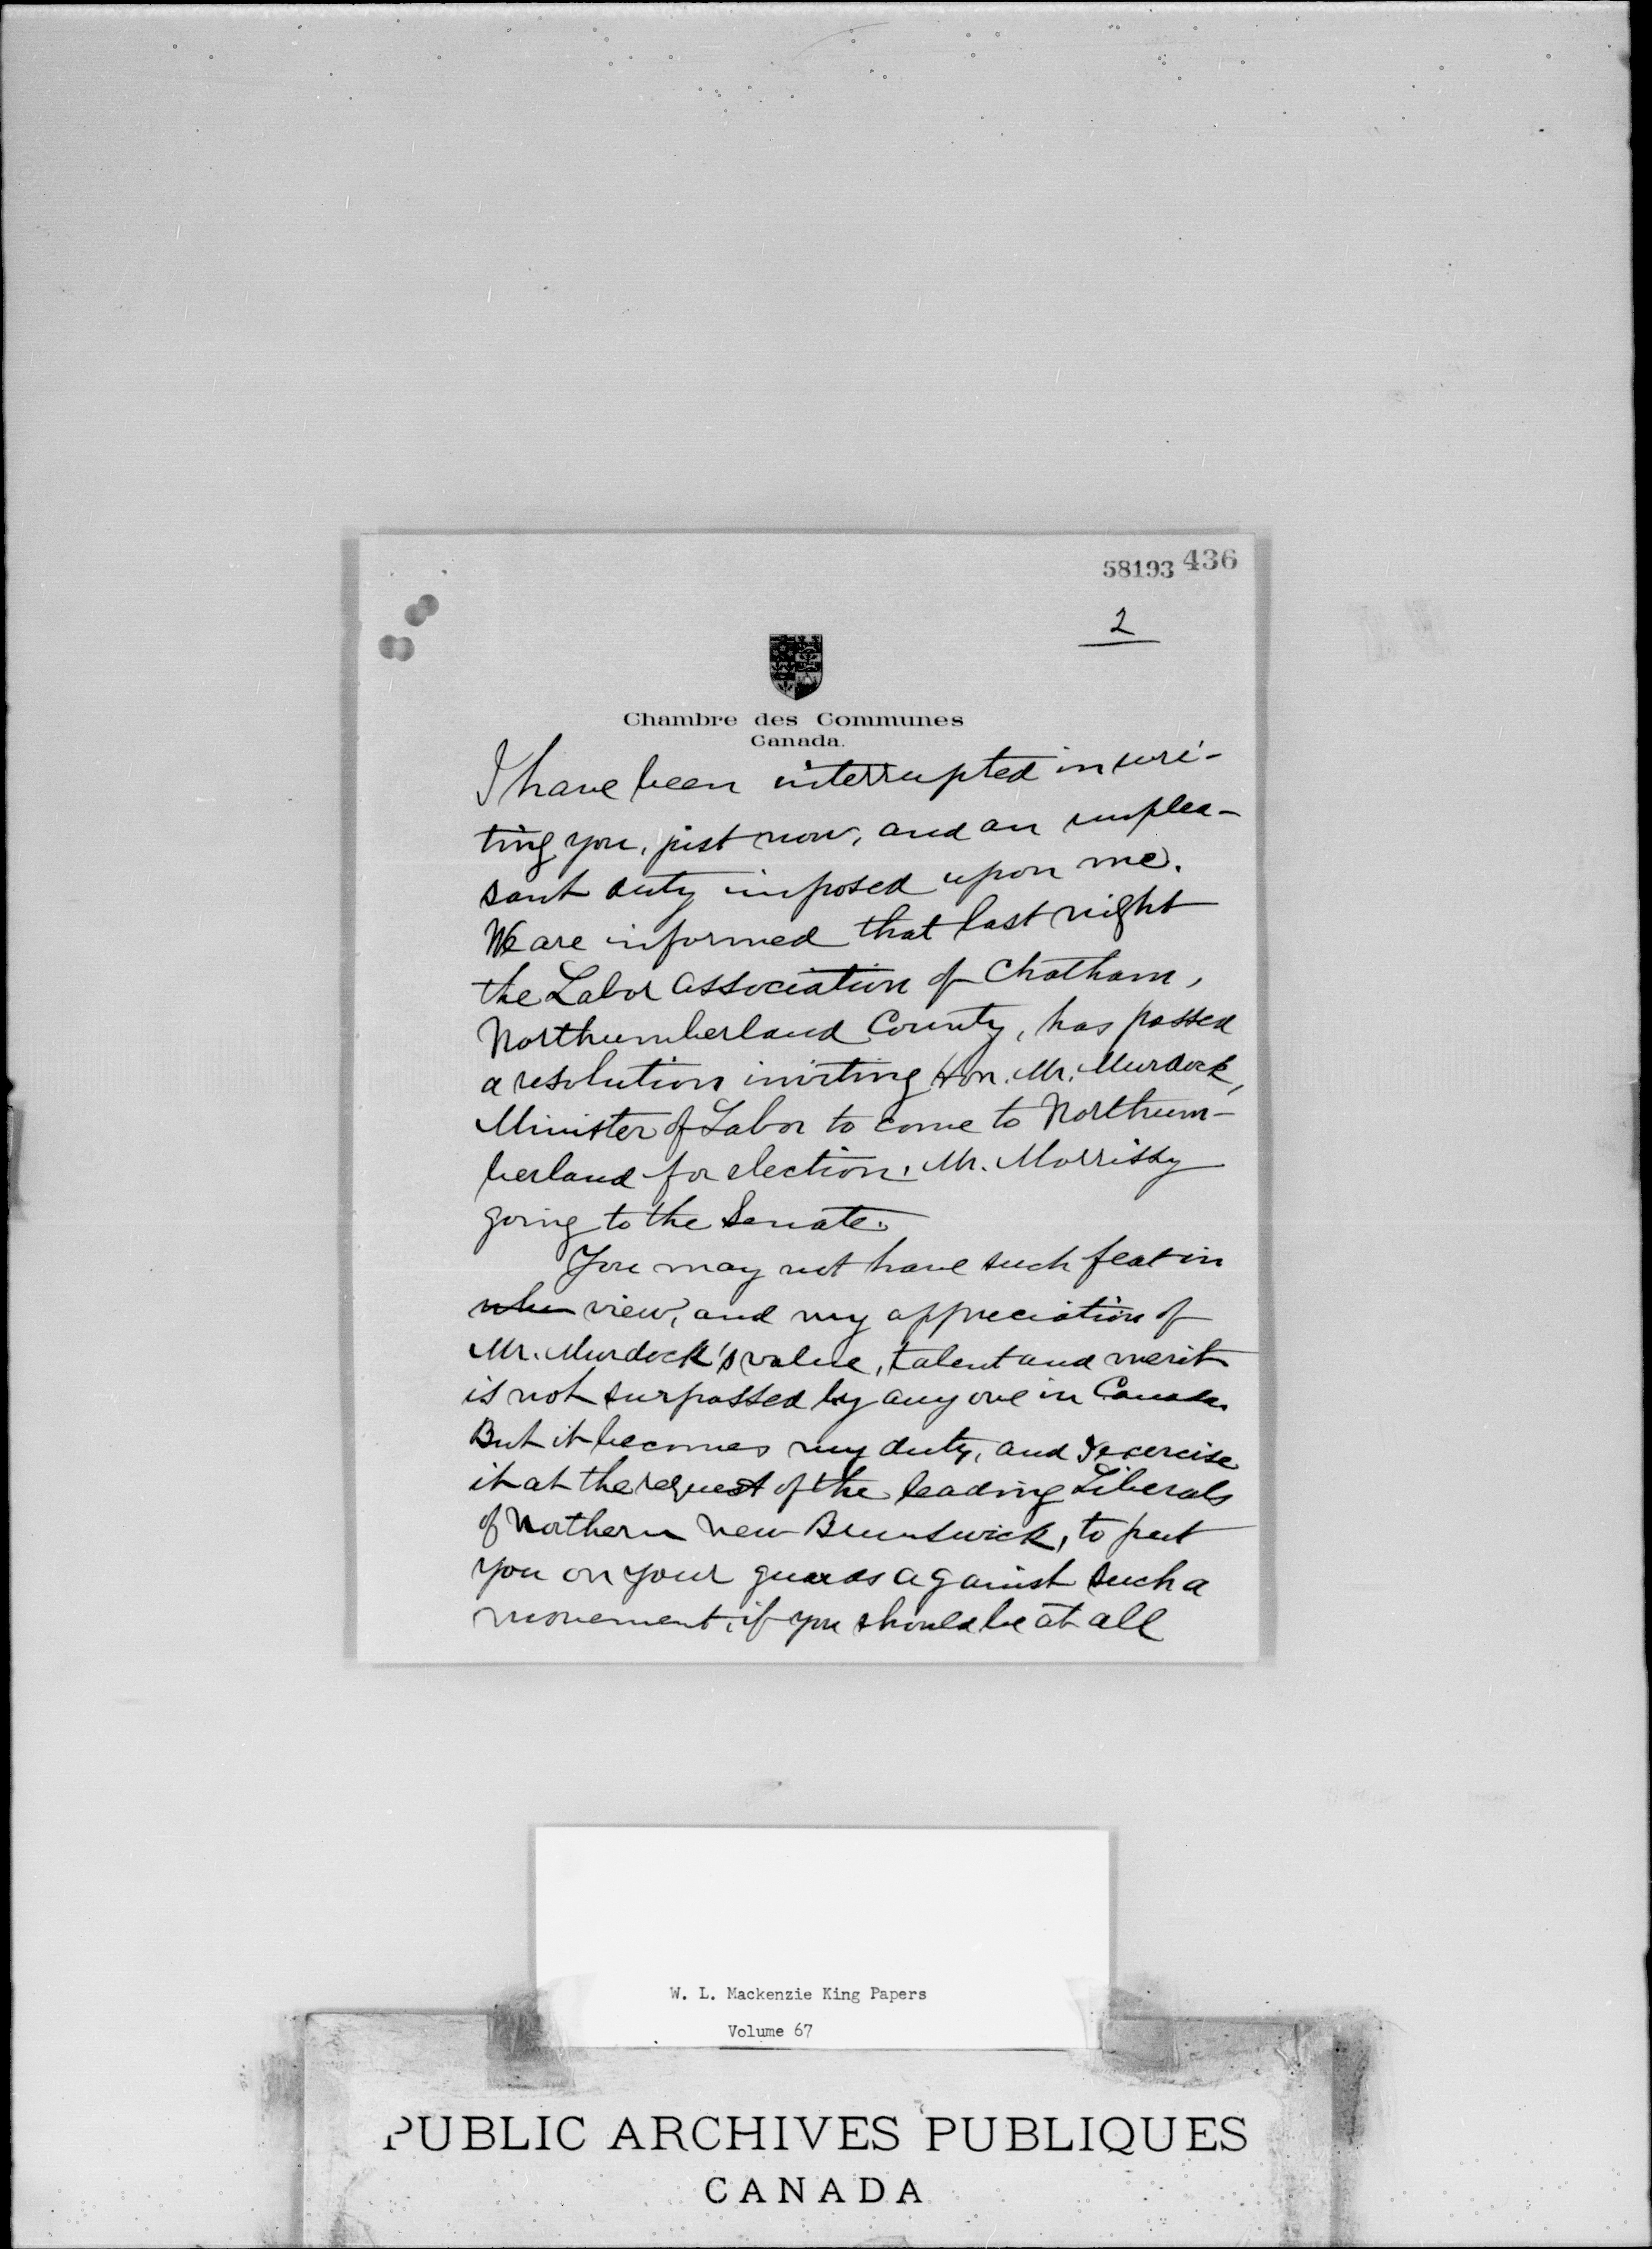 58193 436
2
Chambre des Communes
Canada.
I have been interrupted in wri-
ting you, just now, and an unplea-
sant duty imposed upon me.
We are informed that last night
the Labor Association of Chatham,
Northumberland County, has passed
a resolution inviting Hon. Mr. Murdock,
Minister of Labor to come to Northum-
berland for election, Mr. Morrissy
going to the Senate.
You may not have such feat in
view, and my appreciation of
Mr. Murdock's value, talent and merit
is not surpassed by any one in Canada.
But it becomes my duty, and I exercise
it at the request of the leading Liberals
of Northern New Brunswick, to put
you on your guards against such a
movement, if you should be at all
W. L. Mackenzie King Papers
Volume 67
PUBLIC ARCHIVES PUBLIQUES
CANADA